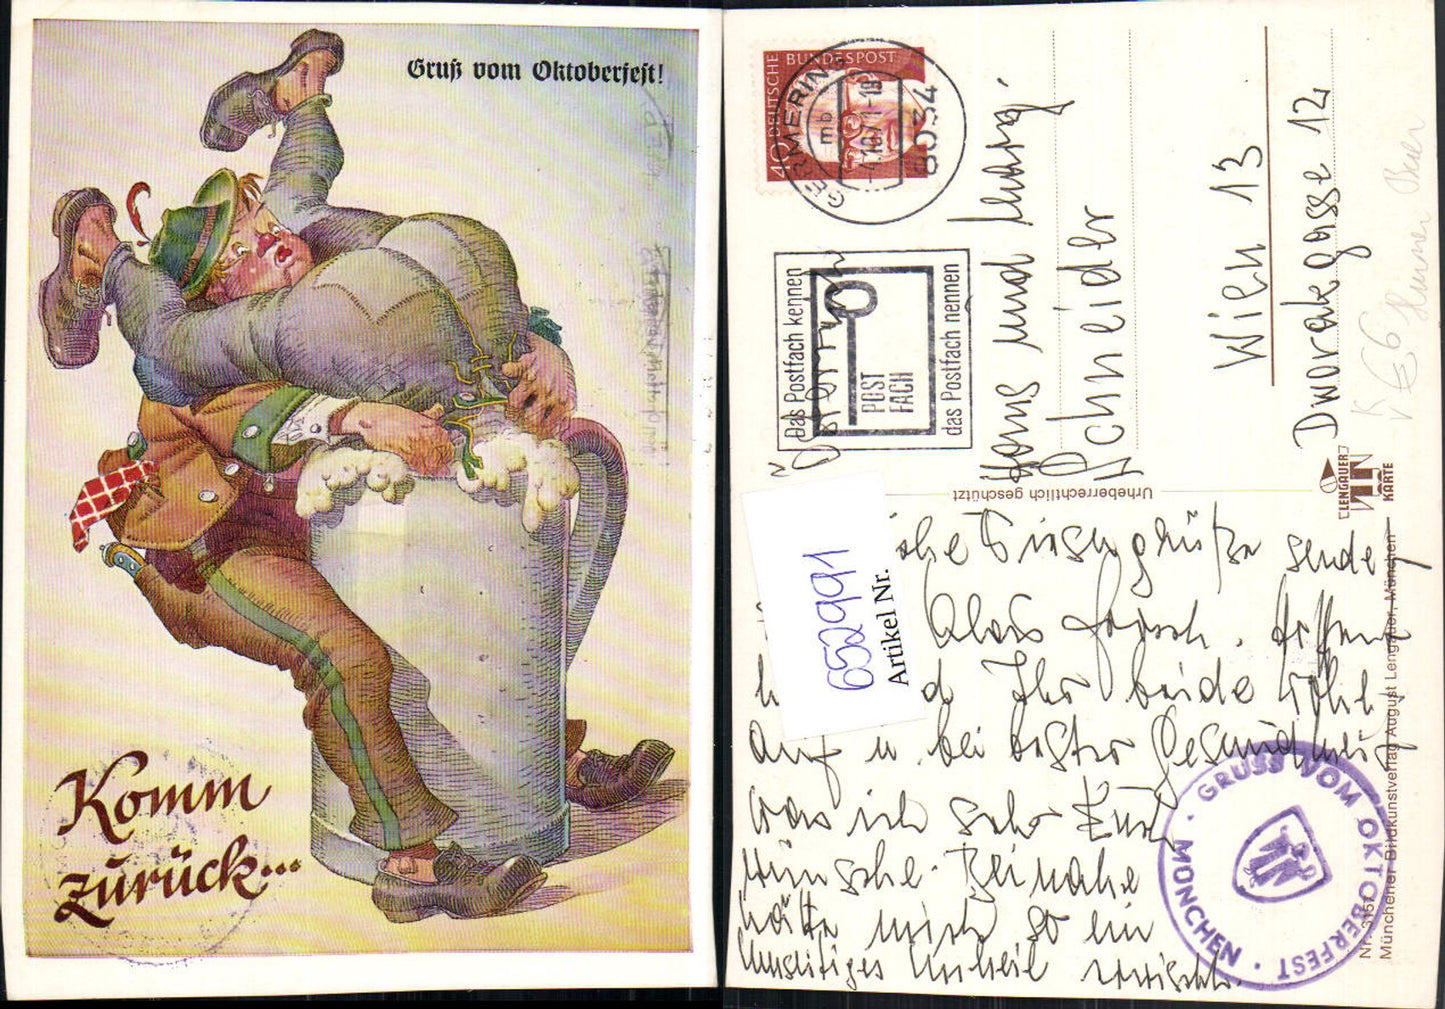 Gruß vom Oktoberfest!
Komm
zurück...
DEUTSCHE BUNDESPOST
40
GERMERING
mb
-4.10.71-18
8034
Das Postfach kennen
POST
FACH
das Postfach nennen
Hans und
Schneider
Wien 13
Dworakgasse 12
Österreich
Urheberrechtlich geschützt
LENGAUER
KARTE
652991
Artikel Nr.
Wiesngrüße sende
Ihr beide
auf u. bei bester Gesundheit
was ich sehr Euch
wünsche. Beinahe
hätte mich so ein
Unheil
GRUSS VOM OKTOBERFEST · MÜNCHEN ·
Nr. 3157
Münchener Bildkunstverlag August Lengauer, München